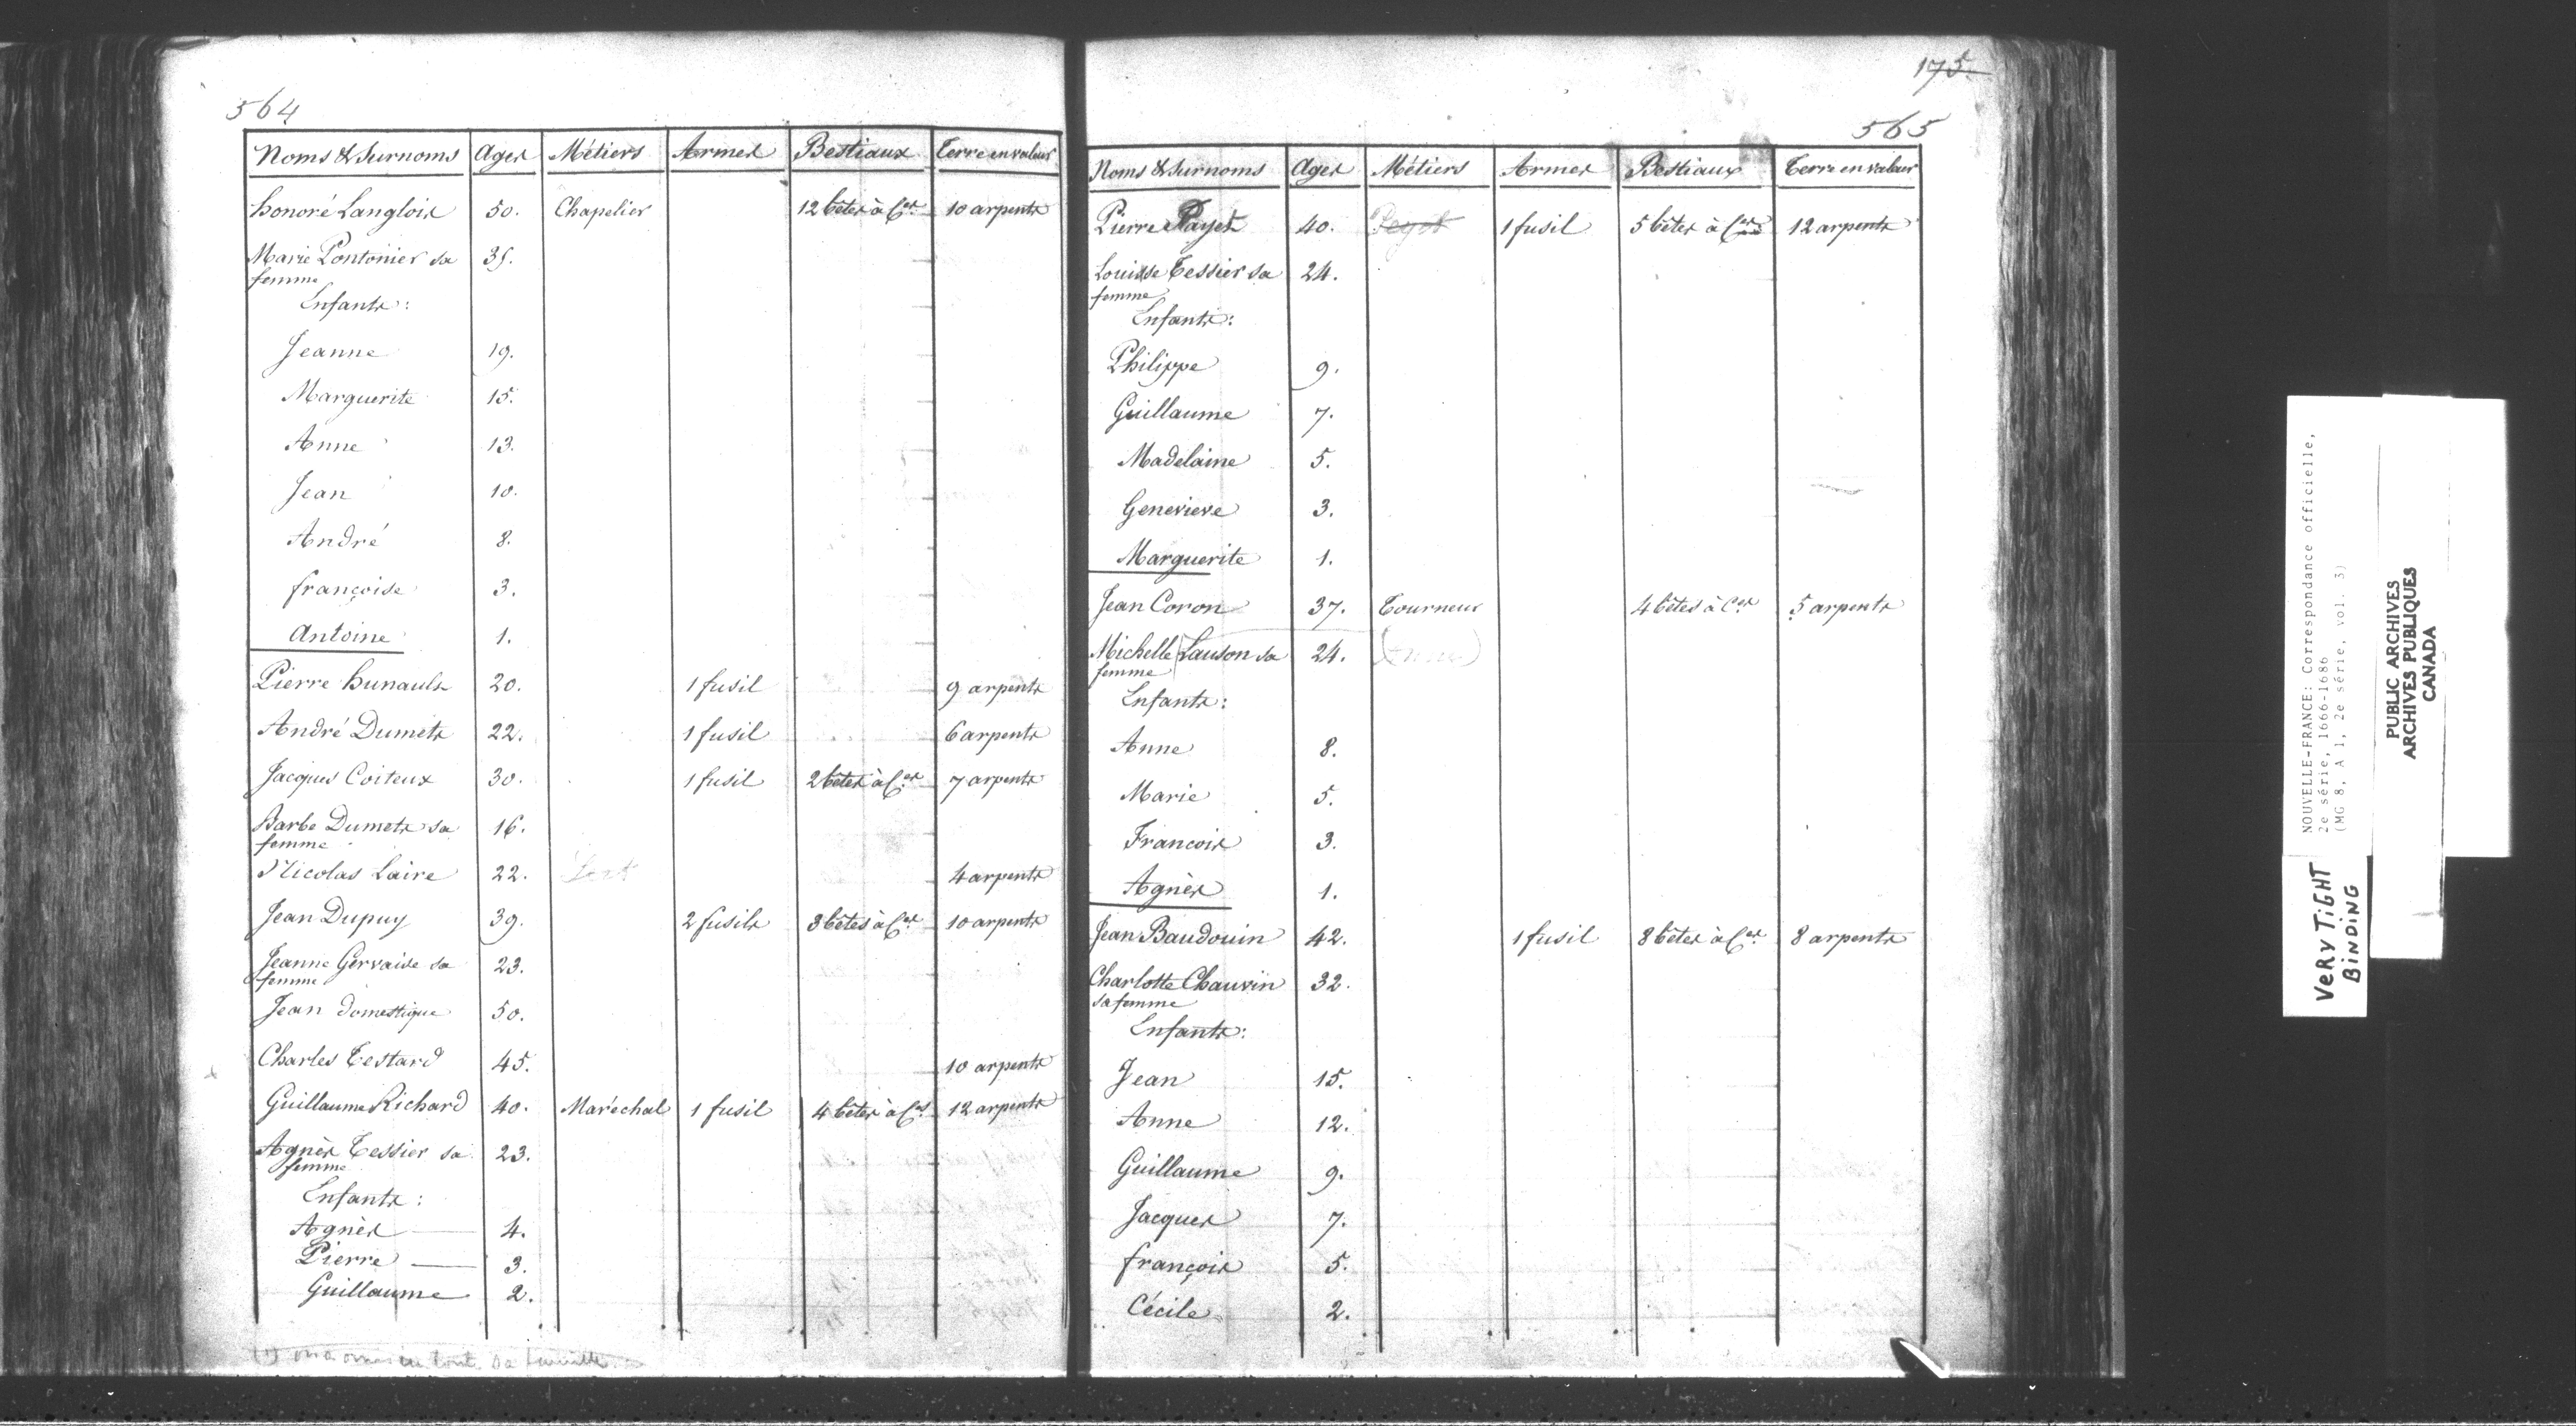 564
Noms & Surnoms Ages Métiers Armes Bestiaux Terre en valeur
honoré Langlois 50. Chapelier 12 bêtes à Ces 10 arpents
Marie Pontonier sa 35.
femme
Enfants:
Jeanne 19.
Marguerite 15.
Anne 13.
Jean 10.
André 8.
françoise 3.
Antoine 1.
Pierre hunault 20. 1 fusil 9 arpents
André Dumets 22. 1 fusil 6 arpents
Jacques Coiteux 30. 1 fusil 2 bêtes à Ces 7 arpents
Barbe Dumets sa 16.
femme
Nicolas Laire 22. 4 arpents
Jean Dupuy 39. 2 fusils 8 bêtes à Ces 10 arpents
Jeanne Gervaise sa 23.
femme
Jean domestique 50.
Charles Testard 45. 10 arpents
Guillaume Richard 40. Maréchal 1 fusil 4 bêtes à Ces 12 arpents
Agnès Tessier sa 23.
femme
Enfants:
Agnès 4.
Pierre 3.
Guillaume 2.
175.
565
Noms & Surnoms Ages Métiers Armes Bestiaux Terre en valeur
Pierre Payet 40. 1 fusil 5 bêtes à Ces 12 arpents
Louise Tessier sa 24.
femme
Enfants:
Philippe 9.
Guillaume 7.
Madelaine 5.
Genevieve 3.
Marguerite 1.
Jean Coron 37. Tourneur 4 bêtes à Ces 5 arpents
Michelle Lauson sa 24.
femme
Enfants:
Anne 8.
Marie 5.
Francois 3.
Agnès 1.
Jean Baudouin 42. 1 fusil 8 bêtes à Ces 8 arpents
Charlotte Chauvin 32.
sa femme
Enfants:
Jean 15.
Anne 12.
Guillaume 9.
Jacques 7.
françois 5.
Cécile 2.
NOUVELLE-FRANCE: Correspondance officielle,
2e série, 1666-1686
(MG 8, A 1, 2e série, vol. 3)
VERY TIGHT
BINDING
PUBLIC ARCHIVES
ARCHIVES PUBLIQUES
CANADA